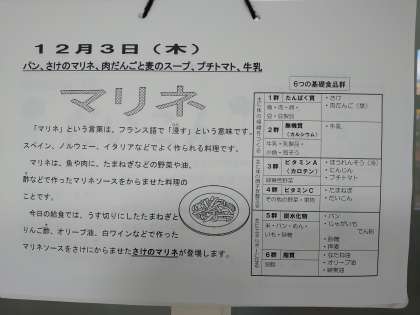 12月3日（木）
パン、さけのマリネ、肉だんごと麦のスープ、プチトマト、牛乳
マリネ
「マリネ」という言葉は、フランス語で「浸す」という意味です。
スペイン、ノルウェー、イタリアなどでよく作られる料理です。
マリネは、魚や肉に、たまねぎなどの野菜や油、
酢などで作ったマリネソースをからませた料理の
ことです。
今日の給食では、うす切りにしたたまねぎと
りんご酢、オリーブ油、白ワインなどで作った
マリネソースをさけにからませたさけのマリネが登場します。
6つの基礎食品群
1群 たんぱく質
魚・肉・卵・
豆・豆製品
・さけ
・肉だんご（豚）
2群 無機質
（カルシウム）
牛乳・乳製品・
小魚・海そう
・牛乳
3群 ビタミンA
（カロテン）
緑黄色野菜
・ほうれんそう（冷）
・にんじん
・プチトマト
4群 ビタミンC
その他の野菜・果物
・たまねぎ
・だいこん
5群 炭水化物
米・パン・めん・
いも・砂糖
・パン
・じゃがいも
でん粉
・砂糖
・押麦
6群 脂質
油脂
・なたね油
・オリーブ油